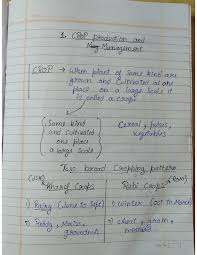 1. CROP Production and
Management
CROP → When plant of same kind are
grown and cultivated at one
place on a large scale it
is called a crops
(Same kind
and cultivated
one place
a large scale)
Cereal, pulses,
vegetables
Two broad Cropping pattern
Kharif Crops
Rabi Crops
1) Rainy (June to Sep)
1) Winter (Oct to March)
2) Paddy, Maize,
groundnut
2) wheat, gram,
mustard